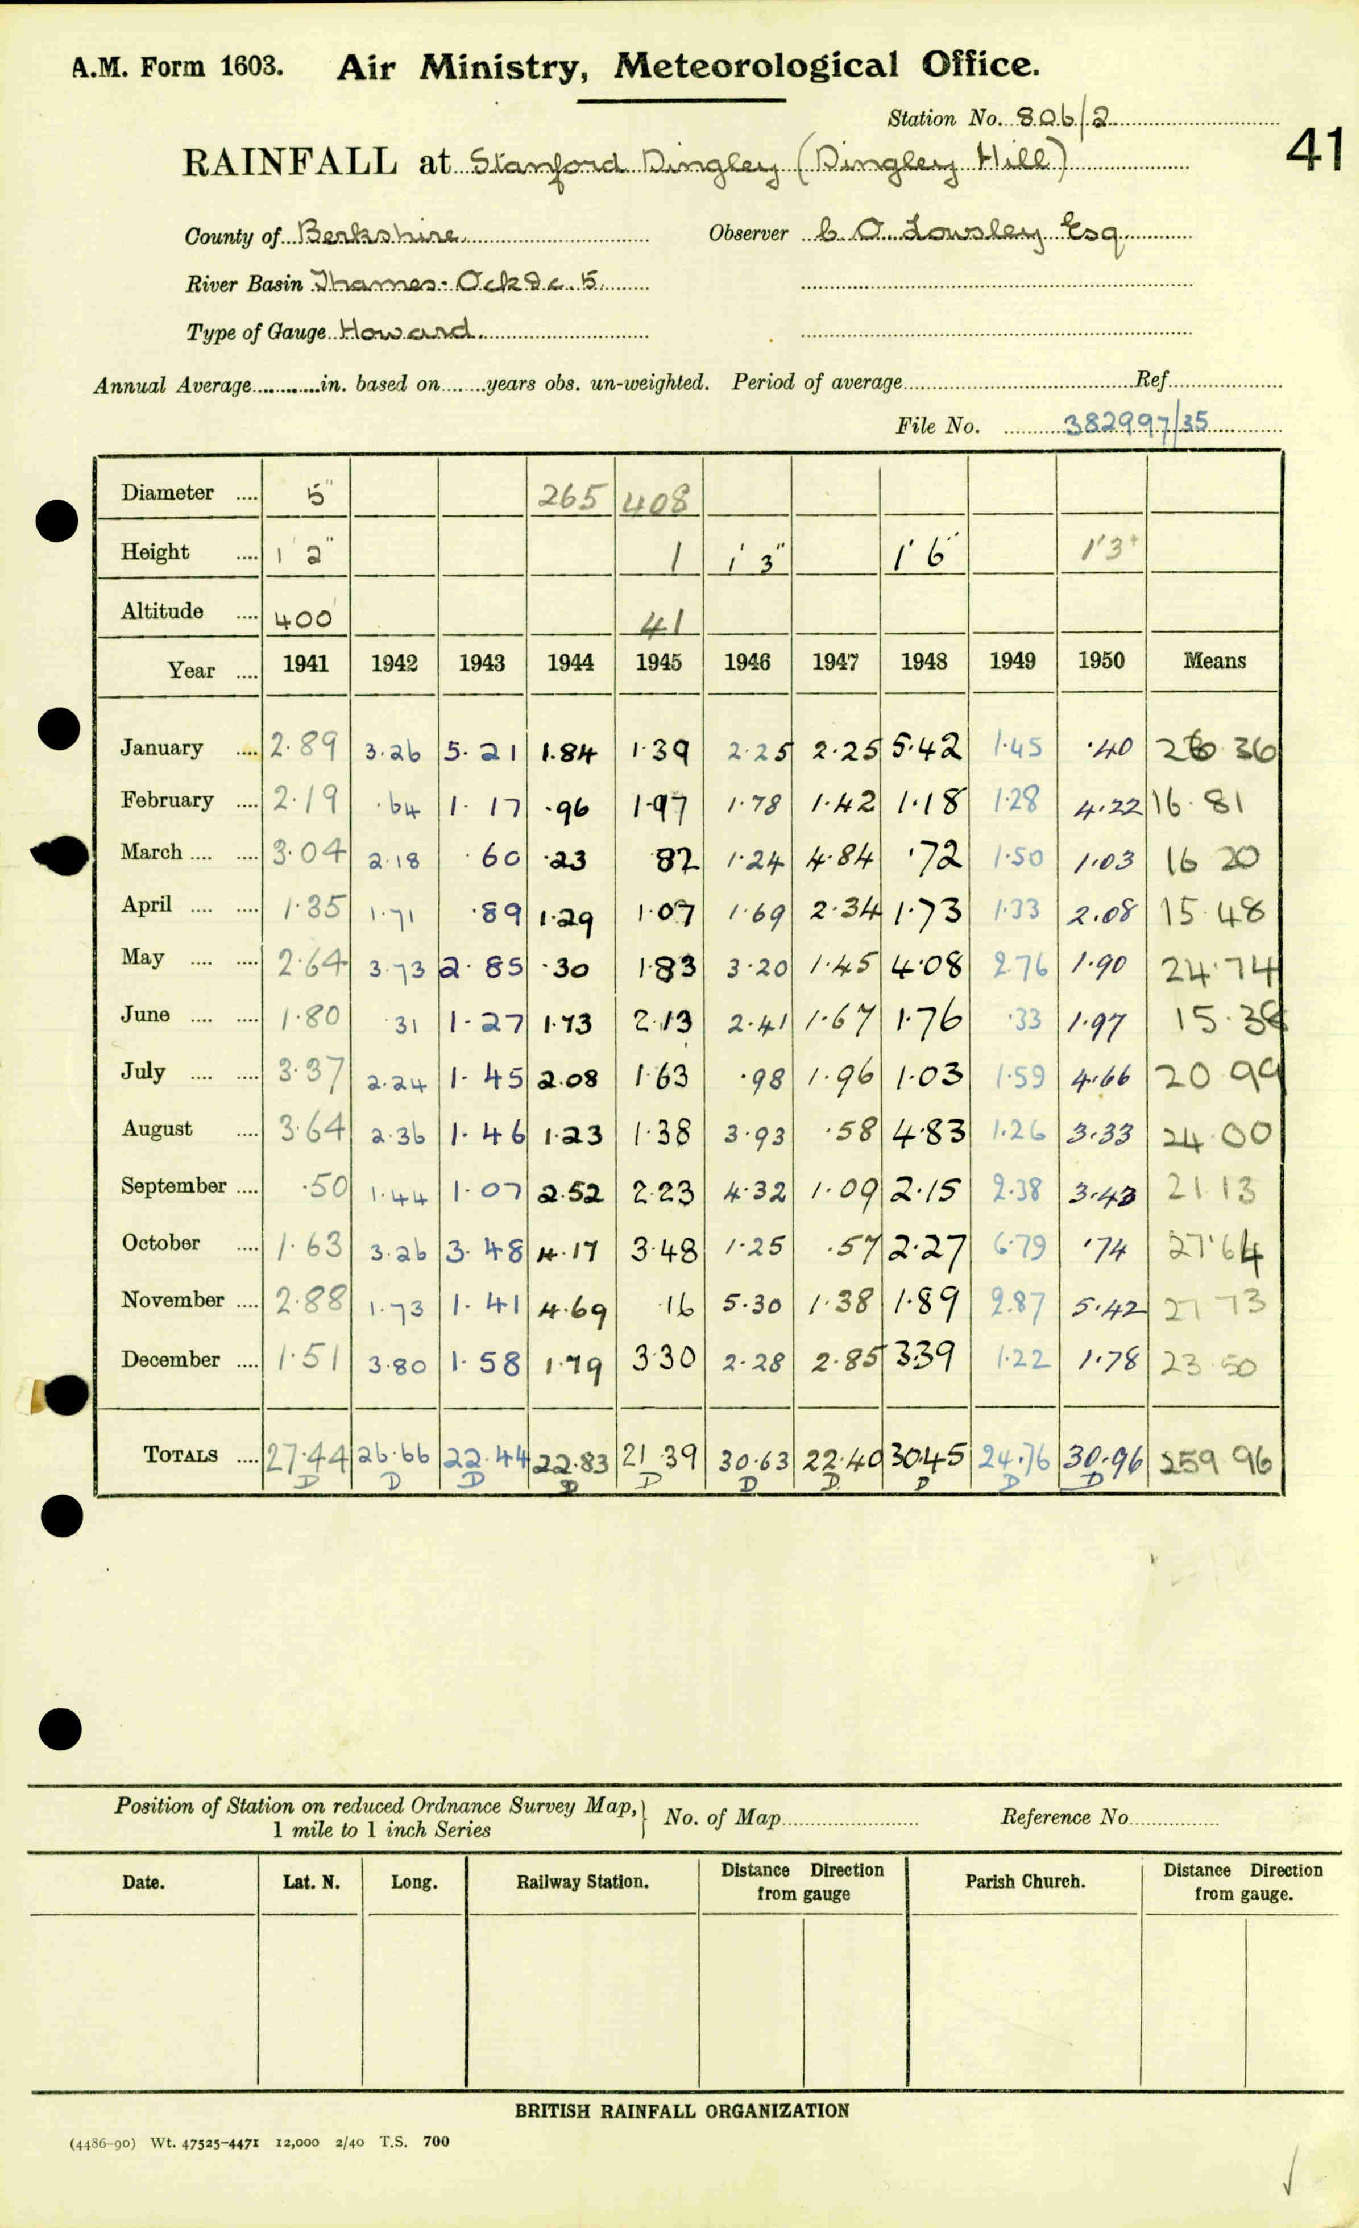 A.M. Form 1603. Air Ministry, Meteorological Office.
Station No. 806/2
41
RAINFALL at Stanford Dingley (Dingley Hill)
County of Berkshire Observer C O Lowsley Esq
River Basin Thames - Ock &c. 5
Type of Gauge Howard
Annual Average............in. based on.......years obs. un-weighted. Period of average Ref
File No. 382997/35
Diameter .... 5" 265 408
Height .... 1' 2" 1 1' 3" 1' 6" 1'3+
Altitude .... 400' 41
Year .... 1941 1942 1943 1944 1945 1946 1947 1948 1949 1950 Means
January .... 2.89 3.26 5.21 1.84 1.39 2.25 2.25 5.42 1.45 .40 26 36
February .... 2.19 .64 1.17 .96 1.97 1.78 1.42 1.18 1.28 4.22 16.81
March .... .... 3.04 2.18 .60 .23 82 1.24 4.84 .72 1.50 1.03 16 20
April .... .... 1.35 1.71 .89 1.29 1.07 1.69 2.34 1.73 1.33 2.08 15.48
May .... .... 2.64 3.73 2.85 .30 1.83 3.20 1.45 4.08 2.76 1.90 24.74
June .... .... 1.80 31 1.27 1.73 2.13 2.41 1.67 1.76 .33 1.97 15.38
July .... .... 3.37 2.24 1.45 2.08 1.63 .98 1.96 1.03 1.59 4.66 20 99
August .... 3.64 2.36 1.46 1.23 1.38 3.93 .58 4.83 1.26 3.33 24.00
September .... .50 1.44 1.07 2.52 2.23 4.32 1.09 2.15 2.38 3.43 21 13
October .... 1.63 3.26 3.48 4.17 3.48 1.25 .57 2.27 6.79 .74 27.64
November .... 2.88 1.73 1.41 4.69 .16 5.30 1.38 1.89 2.87 5.42 27 73
December .... 1.51 3.80 1.58 1.79 3.30 2.28 2.85 3.39 1.22 1.78 23 50
TOTALS .... 27.44 26.66 22.44 22.83 21.39 30.63 22.40 30.45 24.76 30.96 259 96
D D D D D D D D D D
Position of Station on reduced Ordnance Survey Map,} No. of Map Reference No.
1 mile to 1 inch Series
Date. Lat. N. Long. Railway Station. Distance Direction from gauge Parish Church. Distance Direction from gauge.
BRITISH RAINFALL ORGANIZATION
(4486-90) Wt. 47525-4471 12,000 2/40 T.S. 700